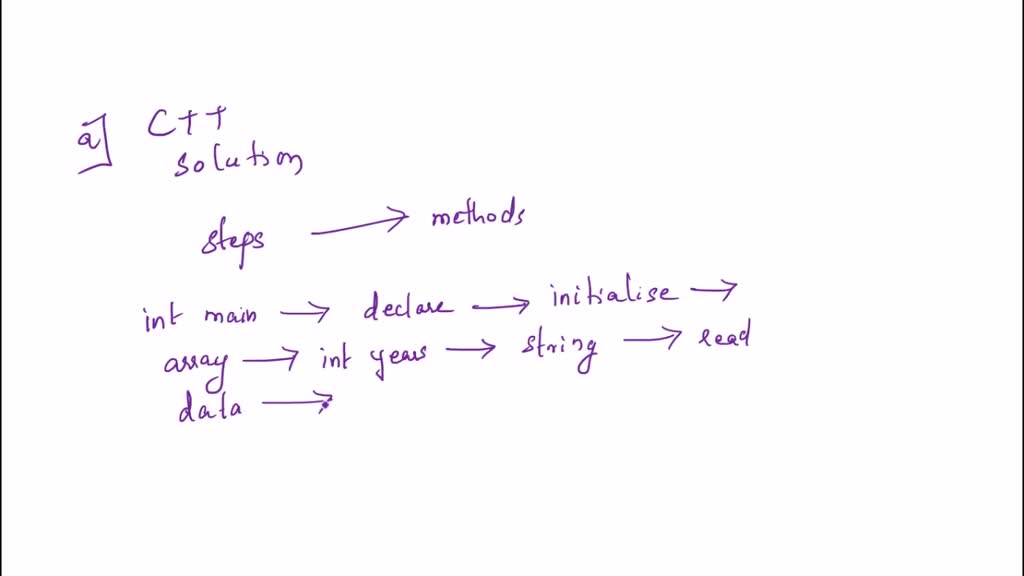 a] C++
solution
steps → methods
int main → declare → initialise →
array → int years → string → read
data →